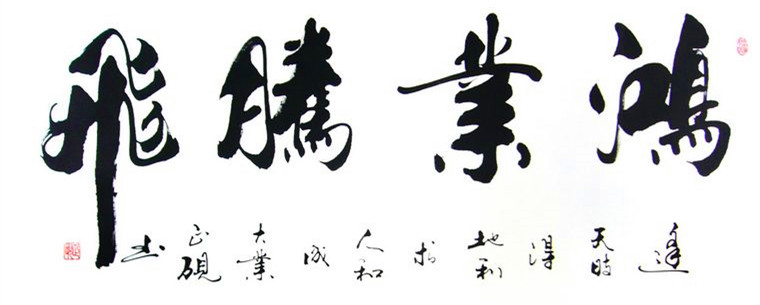 鴻業騰飛
逢天時得地利人和成大業
正硯书